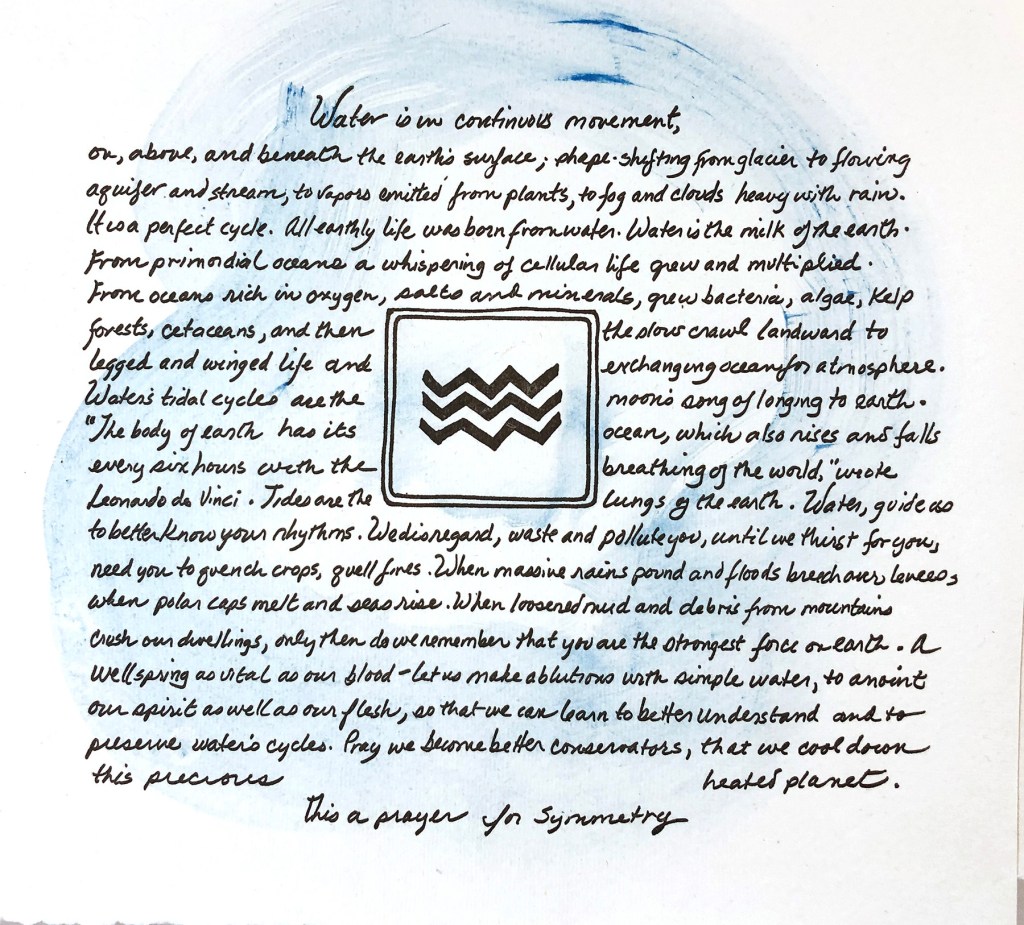 Water is in continuous movement,
on, above, and beneath the earth's surface; shape-shifting from glacier to flowing
aquifer and stream, to vapors emitted from plants, to fog and clouds heavy with rain.
It is a perfect cycle. All earthly life was born from water. Water is the milk of the earth.
From primordial oceans a whispering of cellular life grew and multiplied.
From oceans rich in oxygen, salts and minerals, grew bacteria, algae, Kelp
forests, cetaceans, and then the slow crawl landward to
legged and winged life and exchanging ocean for atmosphere.
Water's tidal cycles are the moon's song of longing to earth.
"The body of earth has its ocean, which also rises and falls
every six hours with the breathing of the world," wrote
Leonardo da Vinci. Tides are the lungs of the earth. Water, guide us
to better know your rhythms. We disregard, waste and pollute you, until we thirst for you,
need you to quench crops, quell fires. When massive rains pound and floods breach our levees,
when polar caps melt and seas rise. When loosened mud and debris from mountains
crush our dwellings, only then do we remember that you are the strongest force on earth. A
wellspring as vital as our blood - let us make ablutions with simple water, to anoint
our spirit as well as our flesh, so that we can learn to better understand and to
preserve water's cycles. Pray we become better conservators, that we cool down
this precious heated planet.
This a prayer for Symmetry